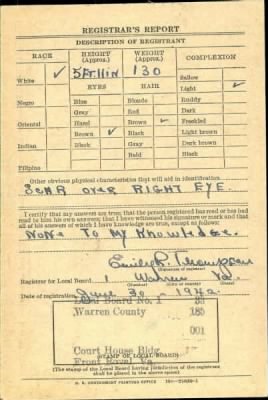 REGISTRAR'S REPORT
DESCRIPTION OF REGISTRANT
RACE HEIGHT (Approx.) WEIGHT (Approx.) COMPLEXION
White ✓ 5 FT. 11 IN 130 Sallow
EYES HAIR Light ✓
Negro Blue Blonde Ruddy
Gray Red Dark
Oriental Hazel Brown ✓ Freckled
Brown ✓ Black Light brown
Indian Black Gray Dark brown
Bald Black
Filipino
Other obvious physical characteristics that will aid in identification
SCAR OVER RIGHT EYE.
I certify that my answers are true; that the person registered has read or has had
read to him his own answers; that I have witnessed his signature or mark and that
all of his answers of which I have knowledge are true, except as follows:
NONE TO MY KNOWLEDGE.
Thompson
(Signature of registrar)
Registrar for Local Board 1 Warren Va.
(Number) (City or county) (State)
Date of registration June 30 - 1942
Board No. 1
Warren County
001
Court House Bldg.
Front Royal Va
(STAMP OF LOCAL BOARD)
(The stamp of the Local Board having jurisdiction of the registrant
shall be placed in the above space)
U. S. GOVERNMENT PRINTING OFFICE